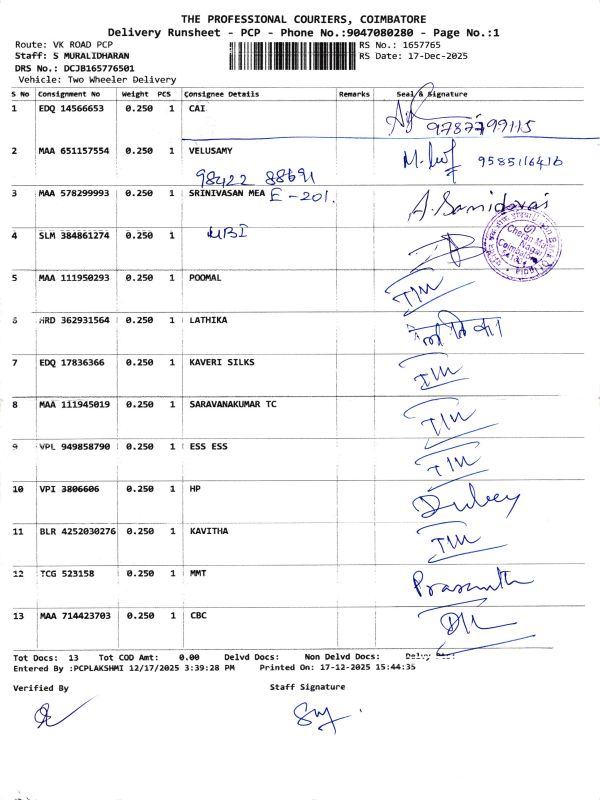 THE PROFESSIONAL COURIERS, COIMBATORE
Delivery Runsheet - PCP - Phone No.:9047080280 - Page No.:1
Route: VK ROAD PCP
RS No.: 1657765
Staff: S MURALIDHARAN
RS Date: 17-Dec-2025
DRS No.: DCJB165776501
Vehicle: Two Wheeler Delivery
S No Consignment No Weight PCS Consignee Details Remarks Seal & Signature
1 EDQ 14566653 0.250 1 CAI
9787799115
2 MAA 651157554 0.250 1 VELUSAMY
9585116416
98422 88691
3 MAA 578299993 0.250 1 SRINIVASAN MEA E-201.
4 SLM 384861274 0.250 1 UBI
5 MAA 111950293 0.250 1 POOMAL
6 HRD 362931564 0.250 1 LATHIKA
7 EDQ 17836366 0.250 1 KAVERI SILKS
8 MAA 111945019 0.250 1 SARAVANAKUMAR TC
9 VPL 949858790 0.250 1 ESS ESS
10 VPI 3806606 0.250 1 HP Dubey
11 BLR 4252030276 0.250 1 KAVITHA
12 TCG 523158 0.250 1 MMT Prasanth
13 MAA 714423703 0.250 1 CBC
Tot Docs: 13 Tot COD Amt: 0.00 Delvd Docs: Non Delvd Docs: Delvy
Entered By :PCPLAKSHMI 12/17/2025 3:39:28 PM Printed On: 17-12-2025 15:44:35
Verified By Staff Signature